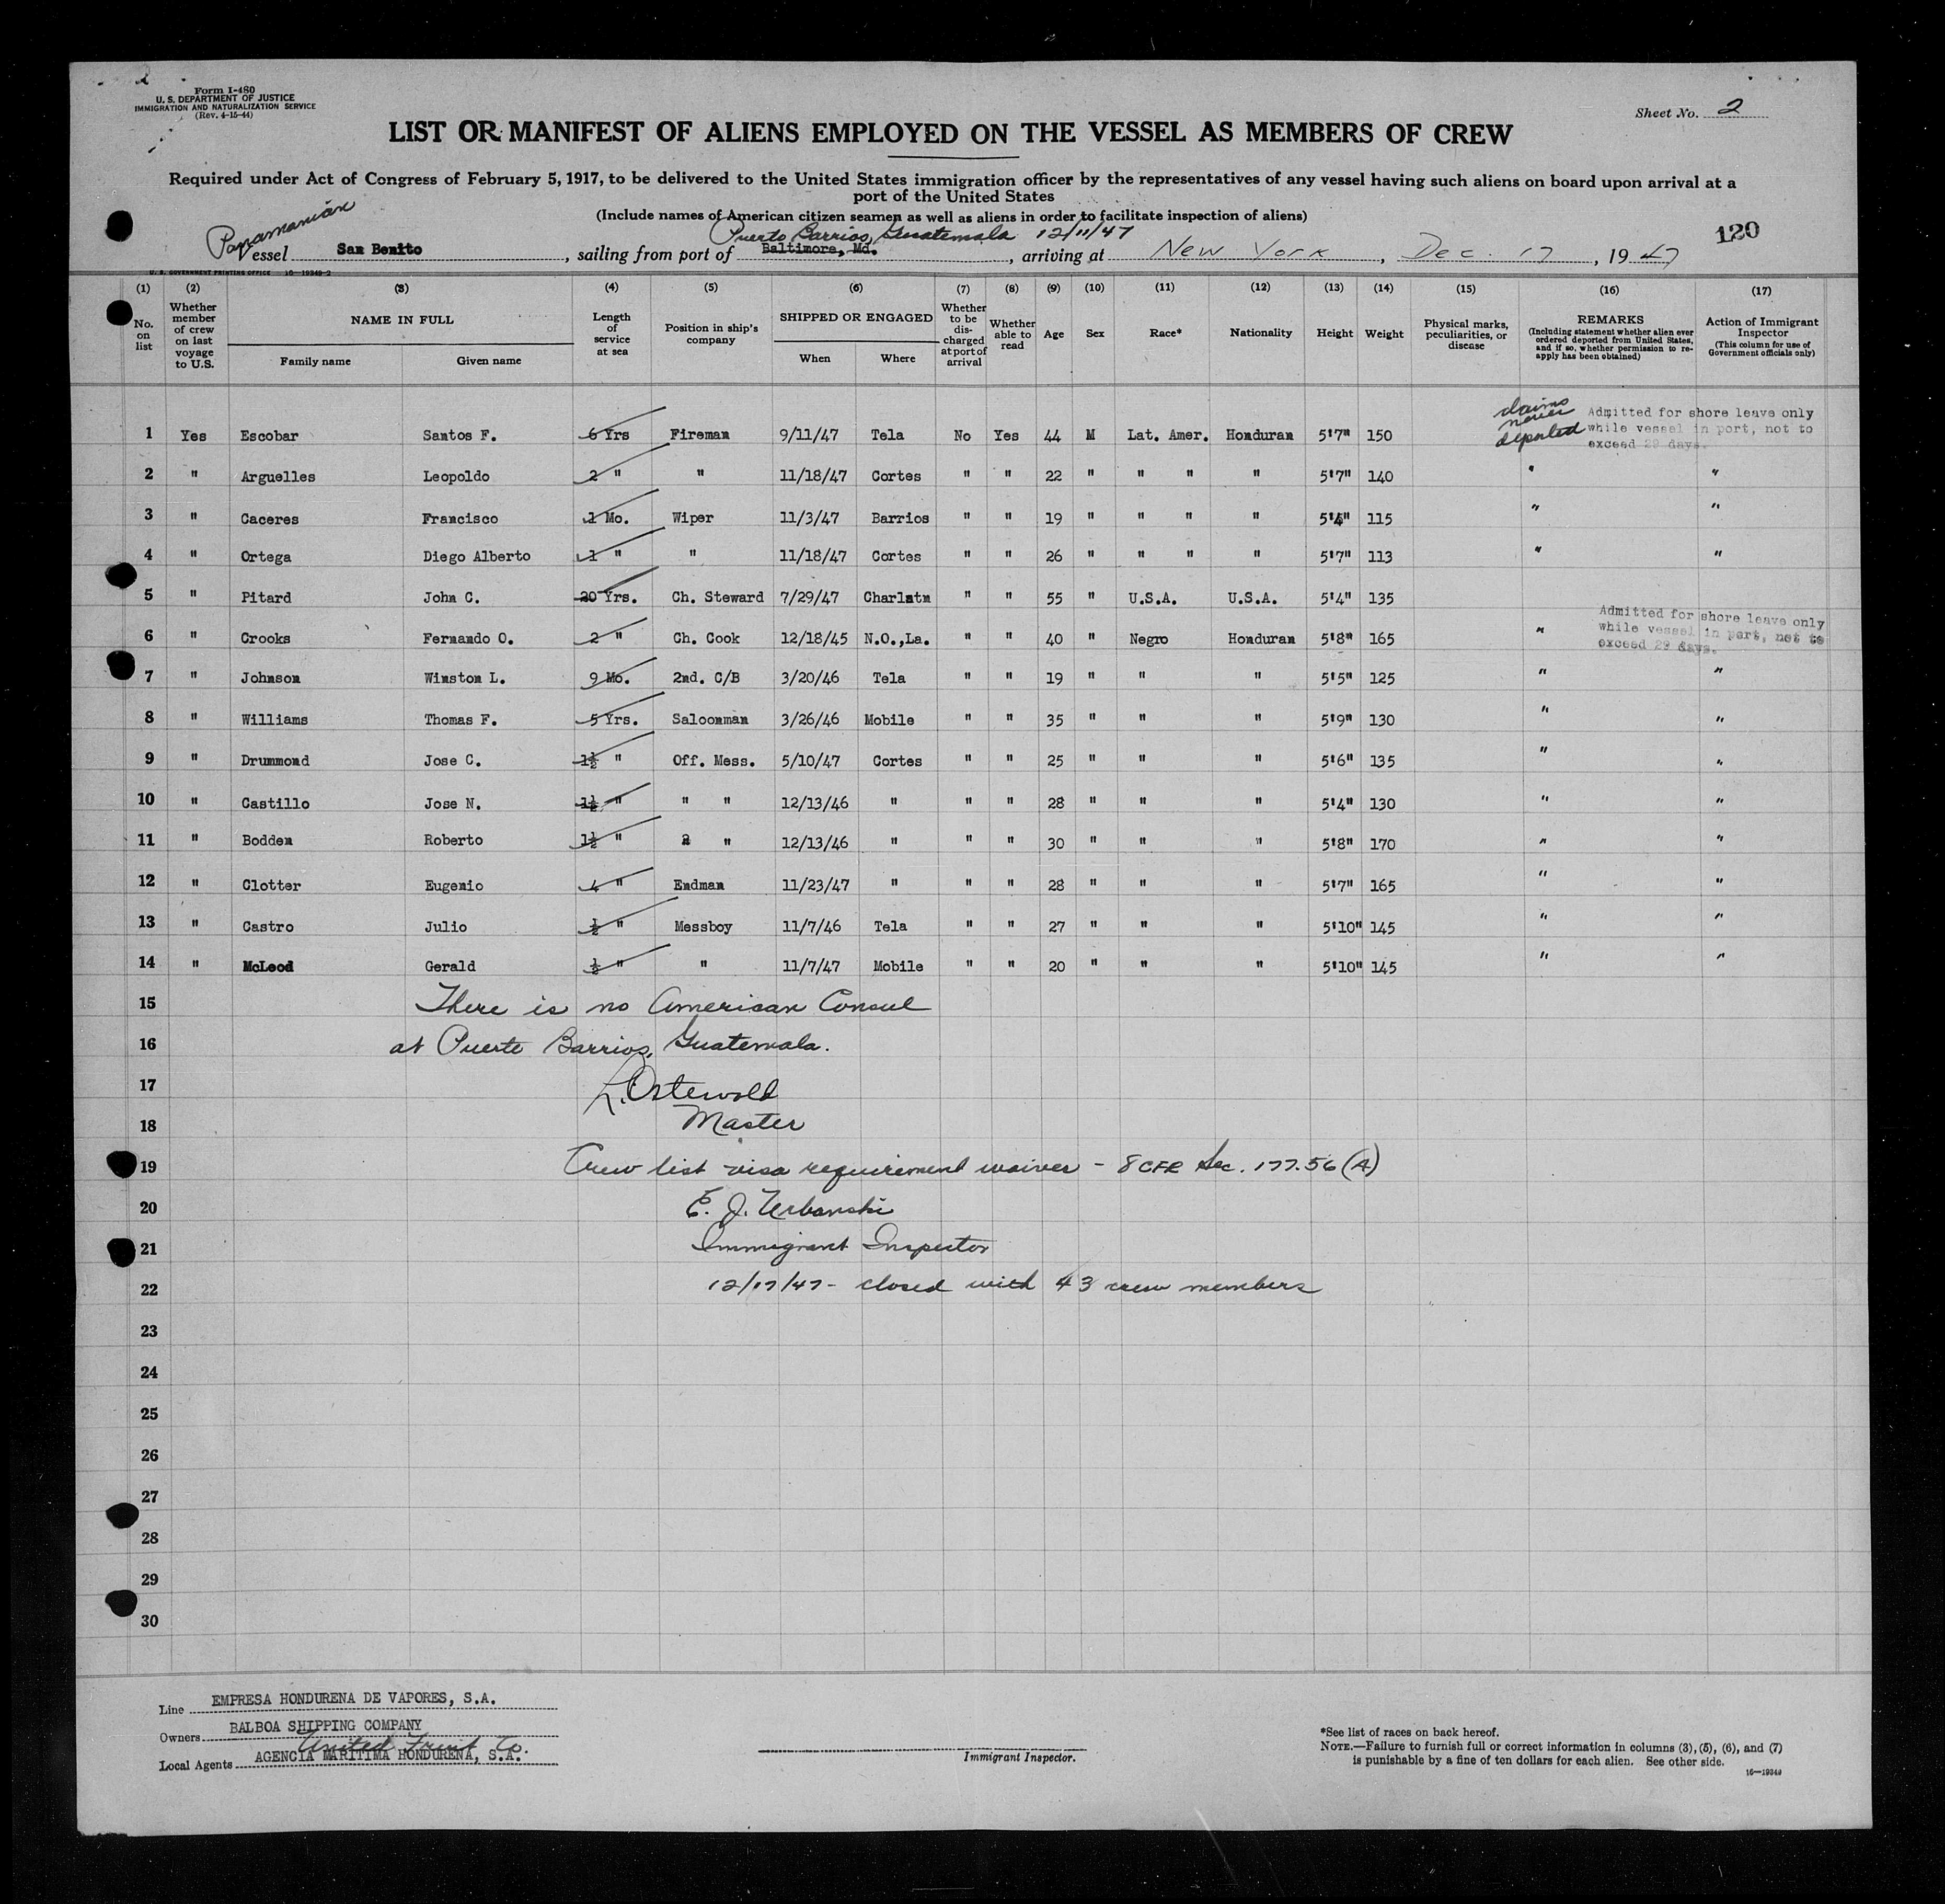 Form I-480
U. S. DEPARTMENT OF JUSTICE
IMMIGRATION AND NATURALIZATION SERVICE
(Rev. 4-15-44)
Sheet No. 2
LIST OR MANIFEST OF ALIENS EMPLOYED ON THE VESSEL AS MEMBERS OF CREW
Required under Act of Congress of February 5, 1917, to be delivered to the United States immigration officer by the representatives of any vessel having such aliens on board upon arrival at a
port of the United States
(Include names of American citizen seamen as well as aliens in order to facilitate inspection of aliens)
120
Panamanian
Puerto Barrios, Guatemala 12/11/47
Vessel San Benito, sailing from port of Baltimore, Md., arriving at New York, Dec. 17, 1947
U. S. GOVERNMENT PRINTING OFFICE 16—19349-2
(1) (2) (3) (4) (5) (6) (7) (8) (9) (10) (11) (12) (13) (14) (15) (16) (17)
No. on list
Whether member of crew on last voyage to U.S.
NAME IN FULL
Family name
Given name
Length of service at sea
Position in ship's company
SHIPPED OR ENGAGED
When
Where
Whether to be discharged at port of arrival
Whether able to read
Age
Sex
Race*
Nationality
Height
Weight
Physical marks, peculiarities, or disease
REMARKS
(Including statement whether alien ever ordered deported from United States, and if so, whether permission to reapply has been obtained)
Action of Immigrant Inspector
(This column for use of Government officials only)
claims never deported
Admitted for shore leave only
while vessel in port, not to
exceed 29 days.
1 Yes Escobar Santos F. 6 Yrs Fireman 9/11/47 Tela No Yes 44 M Lat. Amer. Honduran 5'7" 150
2 " Arguelles Leopoldo 2 " " 11/18/47 Cortes " " 22 " " " " 5'7" 140 " "
3 " Caceres Francisco 1 Mo. Wiper 11/3/47 Barrios " " 19 " " " " 5'4" 115 " "
4 " Ortega Diego Alberto 1 " " 11/18/47 Cortes " " 26 " " " " 5'7" 113 " "
5 " Pitard John C. 20 Yrs. Ch. Steward 7/29/47 Charlstn " " 55 " U.S.A. U.S.A. 5'4" 135
Admitted for shore leave only
while vessel in port, not to
exceed 29 days.
6 " Crooks Fernando O. 2 " Ch. Cook 12/18/45 N.O.,La. " " 40 " Negro Honduran 5'8" 165 "
7 " Johnson Winston L. 9 Mo. 2nd. C/B 3/20/46 Tela " " 19 " " " 5'5" 125 " "
8 " Williams Thomas F. 5 Yrs. Saloonman 3/26/46 Mobile " " 35 " " " 5'9" 130 " "
9 " Drummond Jose C. 1½ " Off. Mess. 5/10/47 Cortes " " 25 " " " 5'6" 135 " "
10 " Castillo Jose N. 1½ " " " 12/13/46 " " " 28 " " " 5'4" 130 " "
11 " Bodden Roberto 1½ " " " 12/13/46 " " " 30 " " " 5'8" 170 " "
12 " Clotter Eugenio 4 " Endman 11/23/47 " " " 28 " " " 5'7" 165 " "
13 " Castro Julio ½ " Messboy 11/7/46 Tela " " 27 " " " 5'10" 145 " "
14 " McLeod Gerald ½ " " 11/7/47 Mobile " " 20 " " " 5'10" 145 " "
15 There is no American Consul
16 at Puerto Barrios, Guatemala.
17 L. Ostewold
18 Master
19 Crew list visa requirement waiver - 8 CFR Sec. 177.56 (A)
20 E. J. Urbanski
21 Immigrant Inspector
22 12/17/47 - closed with 43 crew members
23
24
25
26
27
28
29
30
Line EMPRESA HONDURENA DE VAPORES, S.A.
Owners BALBOA SHIPPING COMPANY
United Fruit Co.
Local Agents AGENCIA MARITIMA HONDURENA, S.A.
Immigrant Inspector.
*See list of races on back hereof.
NOTE.—Failure to furnish full or correct information in columns (3), (5), (6), and (7)
is punishable by a fine of ten dollars for each alien. See other side.
16—19349